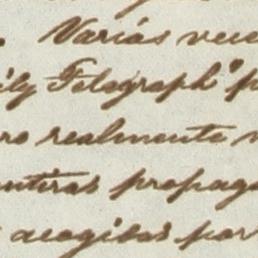 . Varias vece
ily Telegraph" p
ro realmente n
nteras propag
acogidas por